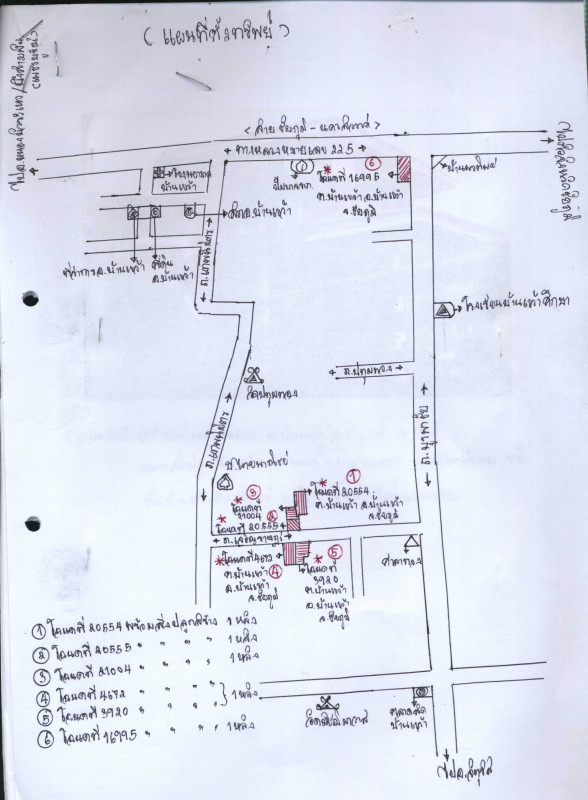 ( แผนที่ตั้งทรัพย์ )
< สาย ชัยภูมิ - นครสวรรค์ >
ทางหลวงหมายเลข 225
โรงพยาบาล
บ้านเขว้า
ปั๊ม ปตท.
⑥
* โฉนดที่ 16995
ต.บ้านเขว้า อ.บ้านเขว้า
จ.ชัยภูมิ
สภ.อ.บ้านเขว้า
ที่ว่าการ อ.บ้านเขว้า
ที่ดิน
อ.บ้านเขว้า
โรงเรียนบ้านเขว้าศึกษา
ถ.ปทุมทอง
วัดปทุมทอง
ธ.ไทยพาณิชย์
①
* โฉนดที่ 20554
ต.บ้านเขว้า อ.บ้านเขว้า
จ.ชัยภูมิ
③
* โฉนดที่
21004
②
* โฉนดที่ 20555
* โฉนดที่ 4692
ต.บ้านเขว้า
อ.บ้านเขว้า
จ.ชัยภูมิ
④
* ⑤
โฉนดที่
3920
ต.บ้านเขว้า
อ.บ้านเขว้า
จ.ชัยภูมิ
ศาลากลาง
① โฉนดที่ 20554 พร้อมสิ่งปลูกสร้าง 1 หลัง
② โฉนดที่ 20555 " " " 1 หลัง
③ โฉนดที่ 21004 " " " 1 หลัง
④ โฉนดที่ 4692 " " " } 1 หลัง
⑤ โฉนดที่ 3920 " " "
⑥ โฉนดที่ 16995 " " " 1 หลัง
ตลาดสด
บ้านเขว้า
ไป อ.จัตุรัส